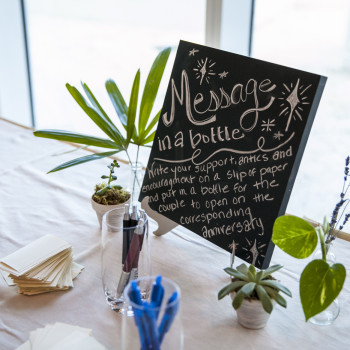 Message
in a bottle
Write your support, antics and
encouragement on a slip of paper
and put in a bottle for the
couple to open on the
corresponding
anniversary